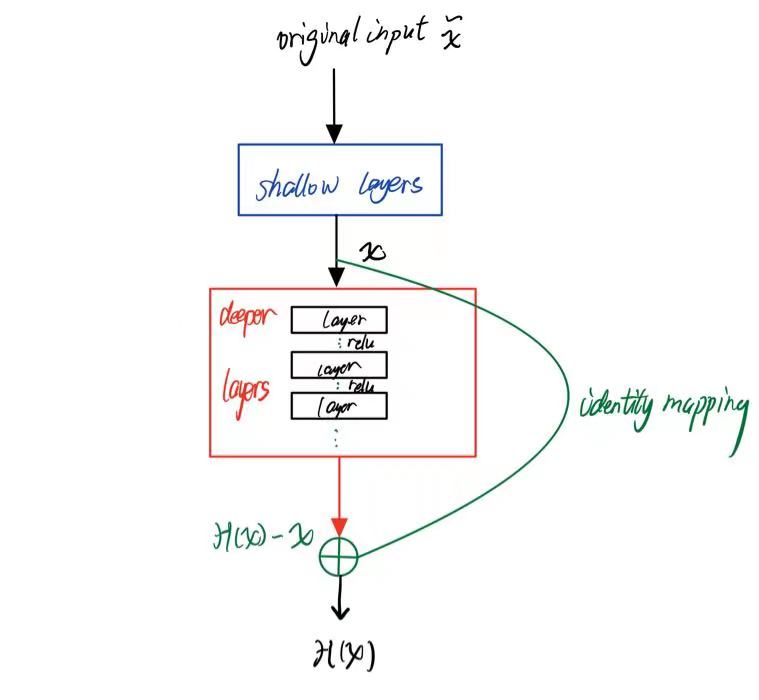 original input x̃
shallow layers
x
deeper
layers
layer
relu
layer
relu
layer
identity mapping
H(x) - x
H(x)